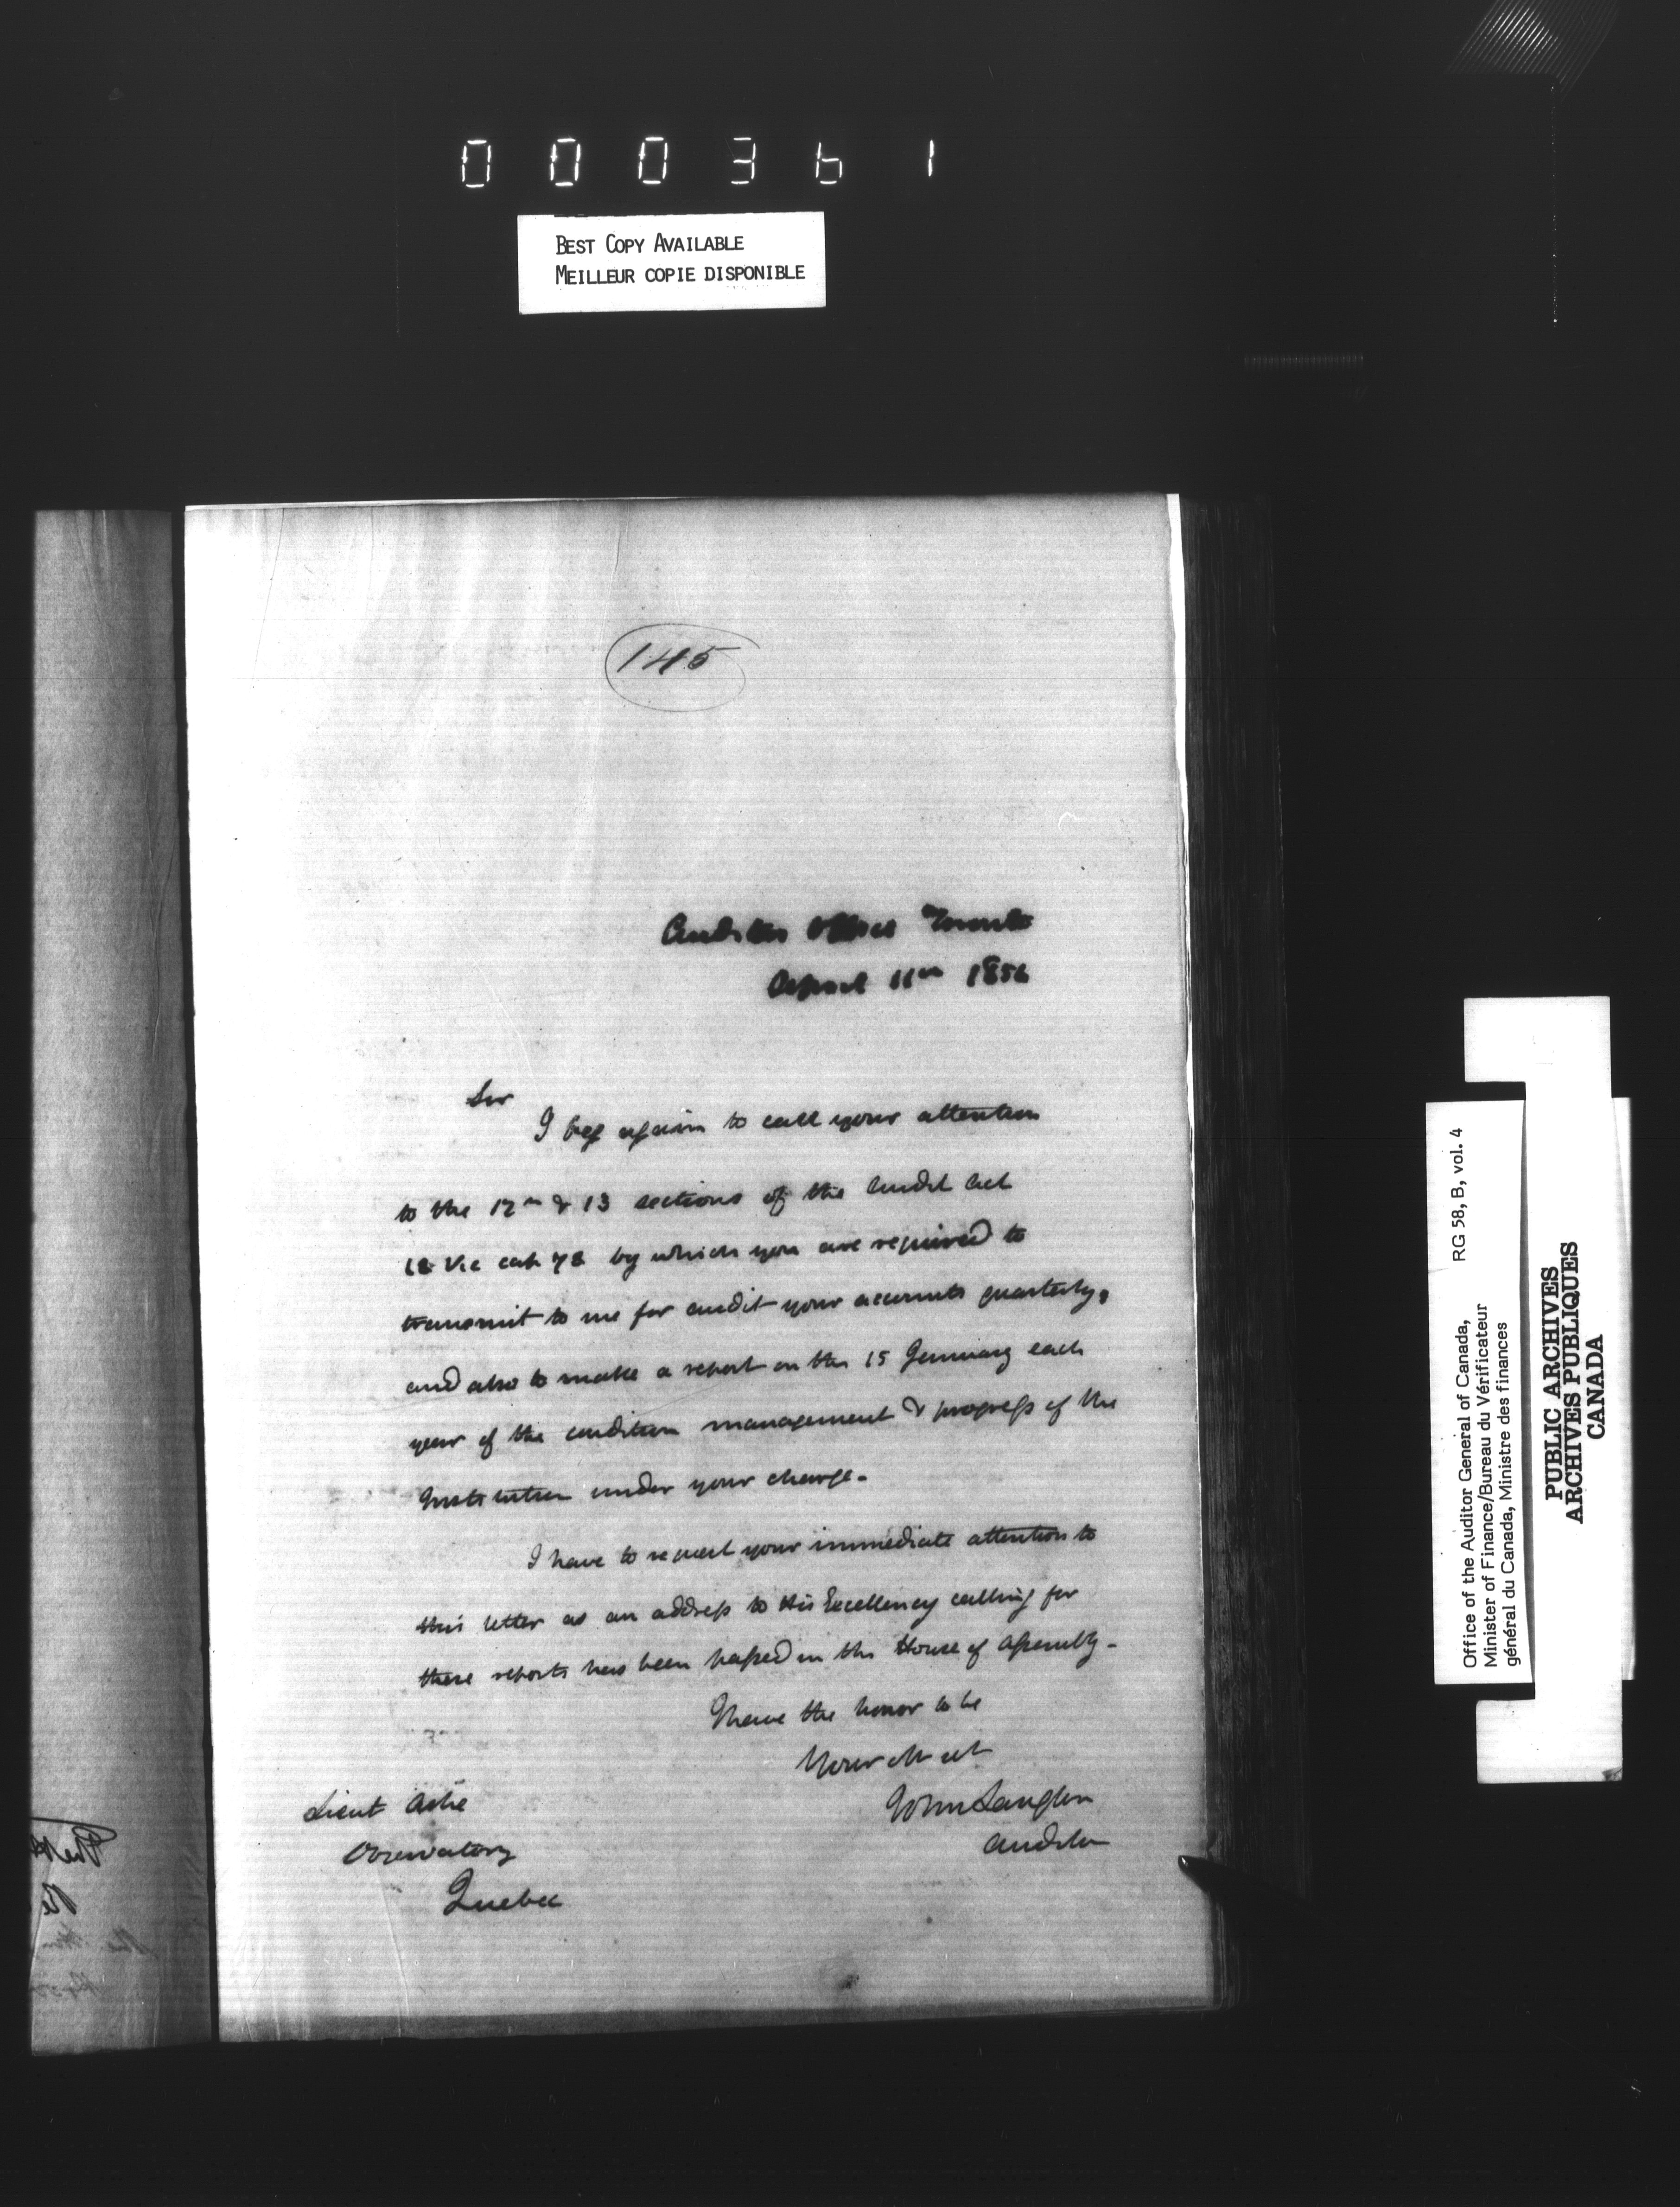 000361
BEST COPY AVAILABLE
MEILLEUR COPIE DISPONIBLE
145
Auditors Office Toronto
April 11th 1856
Sir
I beg again to call your attention
to the 12th & 13 sections of the Audit Act
18 Vic cap 78 by which you are required to
transmit to me for audit your accounts quarterly,
and also to make a report on the 15 January each
year of the condition management & progress of the
Institution under your charge.
I have to request your immediate attention to
this letter as an address to His Excellency calling for
these reports has been passed in the House of Assembly.
I have the honor to be
Your
John Langton
Auditor
Lieut Ashe
Observatory
Quebec
Office of the Auditor General of Canada,
Minister of Finance/Bureau du Vérificateur
général du Canada, Ministre des finances
RG 58, B, vol. 4
PUBLIC ARCHIVES
ARCHIVES PUBLIQUES
CANADA